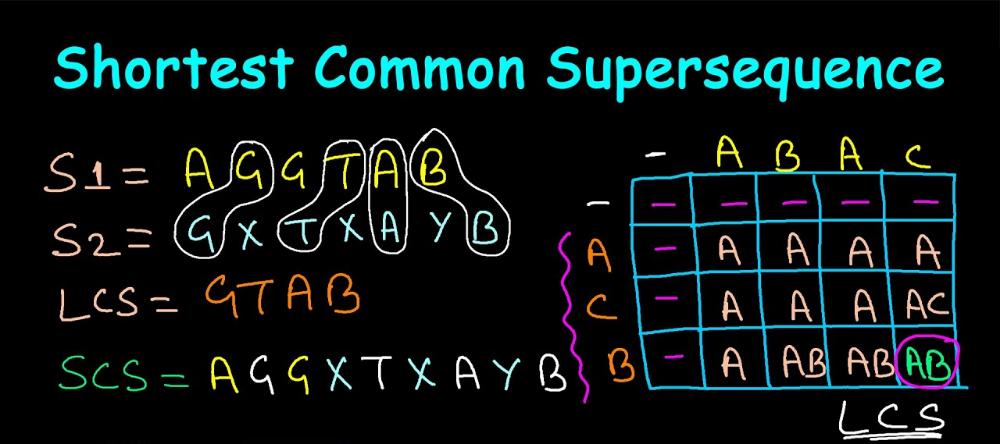 Shortest Common Supersequence
S1 = A G G T A B
S2 = G X T X A Y B
LCS = GTAB
SCS = A G G X T X A Y B
- A B A C
- - - - - -
A - A A A A
C - A A A AC
B - A AB AB AB
LCS